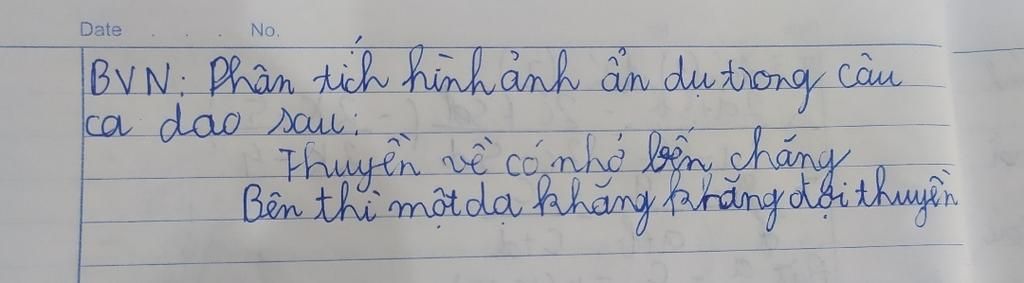 Date . . . . No.
BVN: Phân tích hình ảnh ẩn dụ trong câu
ca dao sau:
Thuyền về có nhớ bến chăng
Bến thì một dạ khăng khăng đợi thuyền